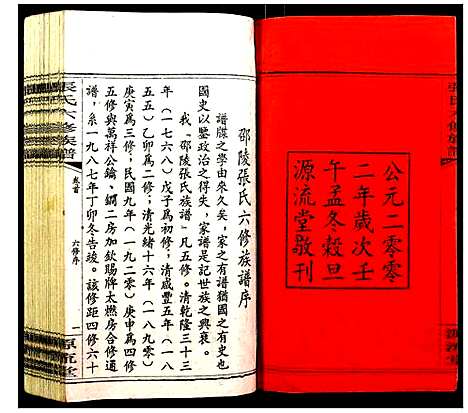 公元二零零
二年歲次壬
午孟冬穀旦
源流堂敬刊
邵陵張氏六修族譜序
譜牒之學由來久矣，家之有譜猶國之有史也
國史以鑒政治之得失，家譜是記世族之興衰。
我《邵陵張氏族譜》凡五修。清乾隆三十三
年（一七六八）戊子爲初修；清咸豐五年（一八
五五）乙卯爲二修；清光緒十六年（一八九〇）
庚寅爲三修，民國九年（一九二〇）庚申爲四修
五修與萬祥公錀、鐗二房加欽賜牌太燃房合修通
譜，系一九八七年丁卯冬告竣。該修距四修六十
張氏六修族譜
卷首
六修序
一
源流堂